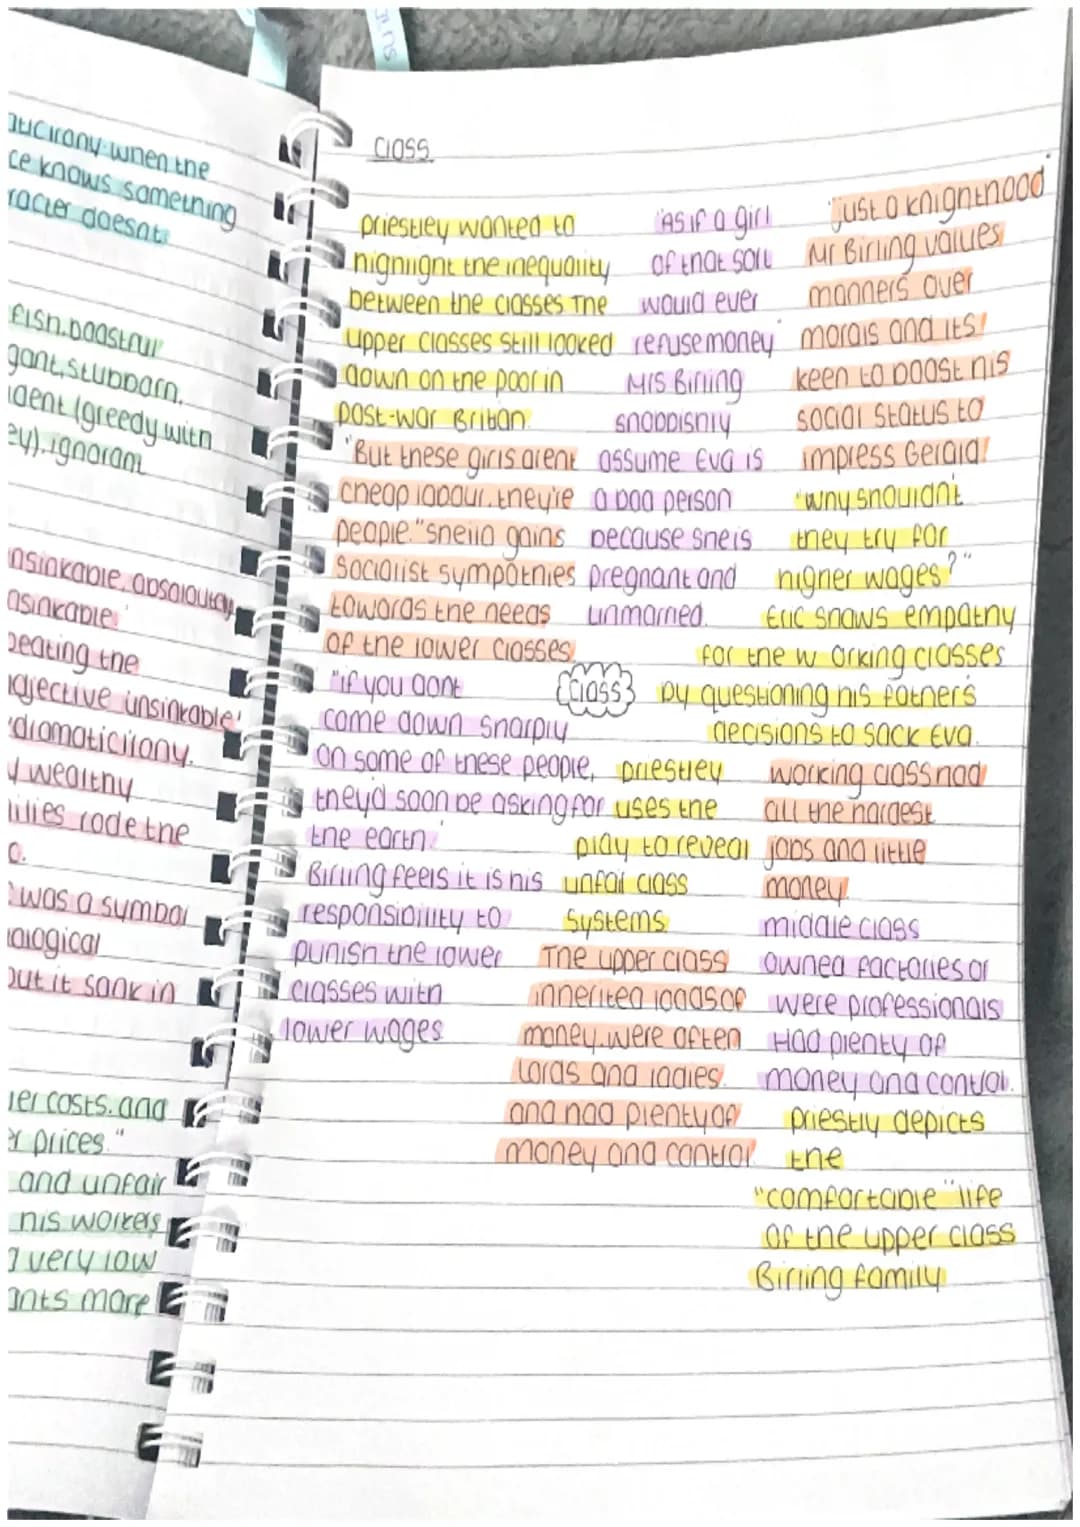 suns
aticirony. when the
ce knows something
racter doesnt.
fish. boastful
gant, stubborn,
dent (greedy with
ey). ignorant
nsinkable, absoloutly
asinkable'
peating the
adjective unsinkable'
dramaticirony.
y wealthy
ilies rode the
o.
was a symbol
ological
but it sank in
er costs. and
er prices."
and unfair
his workers
g very low
ants more
Class
priestley wanted to
highlight the inequality
between the classes The
upper classes still looked
down on the poor in
post-war Britan.
"But these girls arent
cheap labour. they're
people." sheila gains
socialist sympathies
towards the needs
of the lower classes.
"if you dont
come down sharply
on some of these people,
they'd soon be asking for
the earth."
Birling feels it is his
responsibility to
punish the lower
classes with
lower wages
"As if a girl
of that sort
would ever
refuse money"
Mrs Birling
snobbishly
assume Eva is
a bad person
because she is
pregnant and
unmarried.
"just a knighthood"
Mr Birling values
manners over
morals and its
keen to boast his
social status to
impress Gerald.
"why shouldn't
they try for
higher wages?"
Eric shows empathy
for the w orking classes
by questioning his father's
decisions to sack Eva.
Class
priestley
uses the
play to reveal
unfair class
systems
The upper class
inherited loads of
money. were often
lords and ladies.
and had plenty of
money and control
working class had
all the hardest
jobs and little
money
middle class
owned factories or
were professionals
Had plenty of
money and control.
priestly depicts
the
"comfortable" life
of the upper class
Birling family